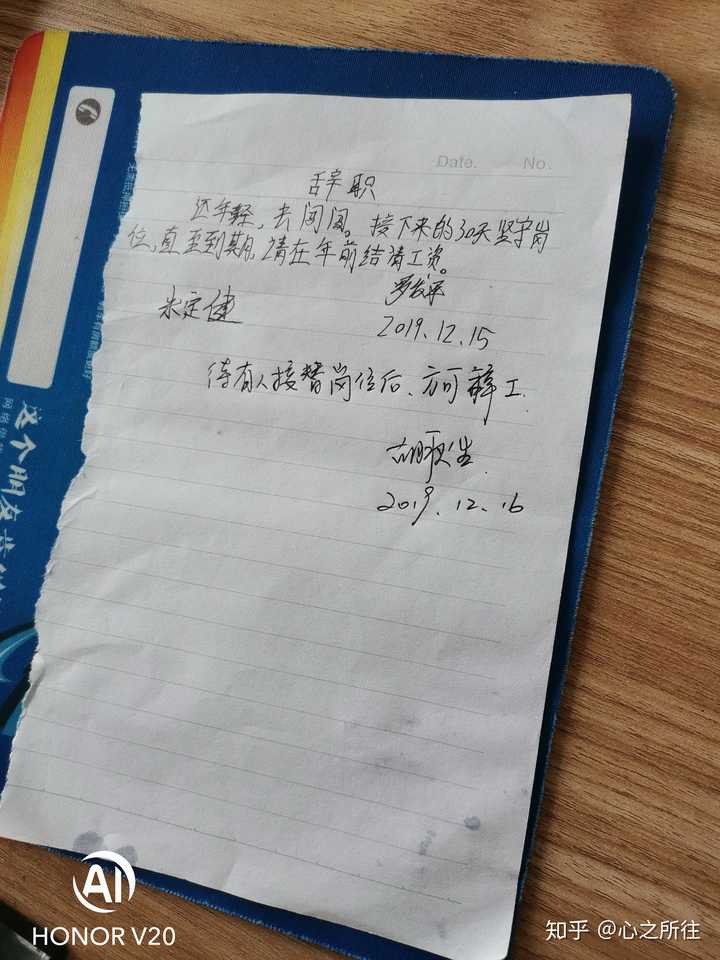 Date. No.
辞职
还年轻，去闯闯。接下来的30天坚守岗
位，直至到期，请在年前结清工资。
2019.12.15
待有人接替岗位后、方可辞工.
2019.12.16
这个朋友
AI
HONOR V20
知乎 @心之所往